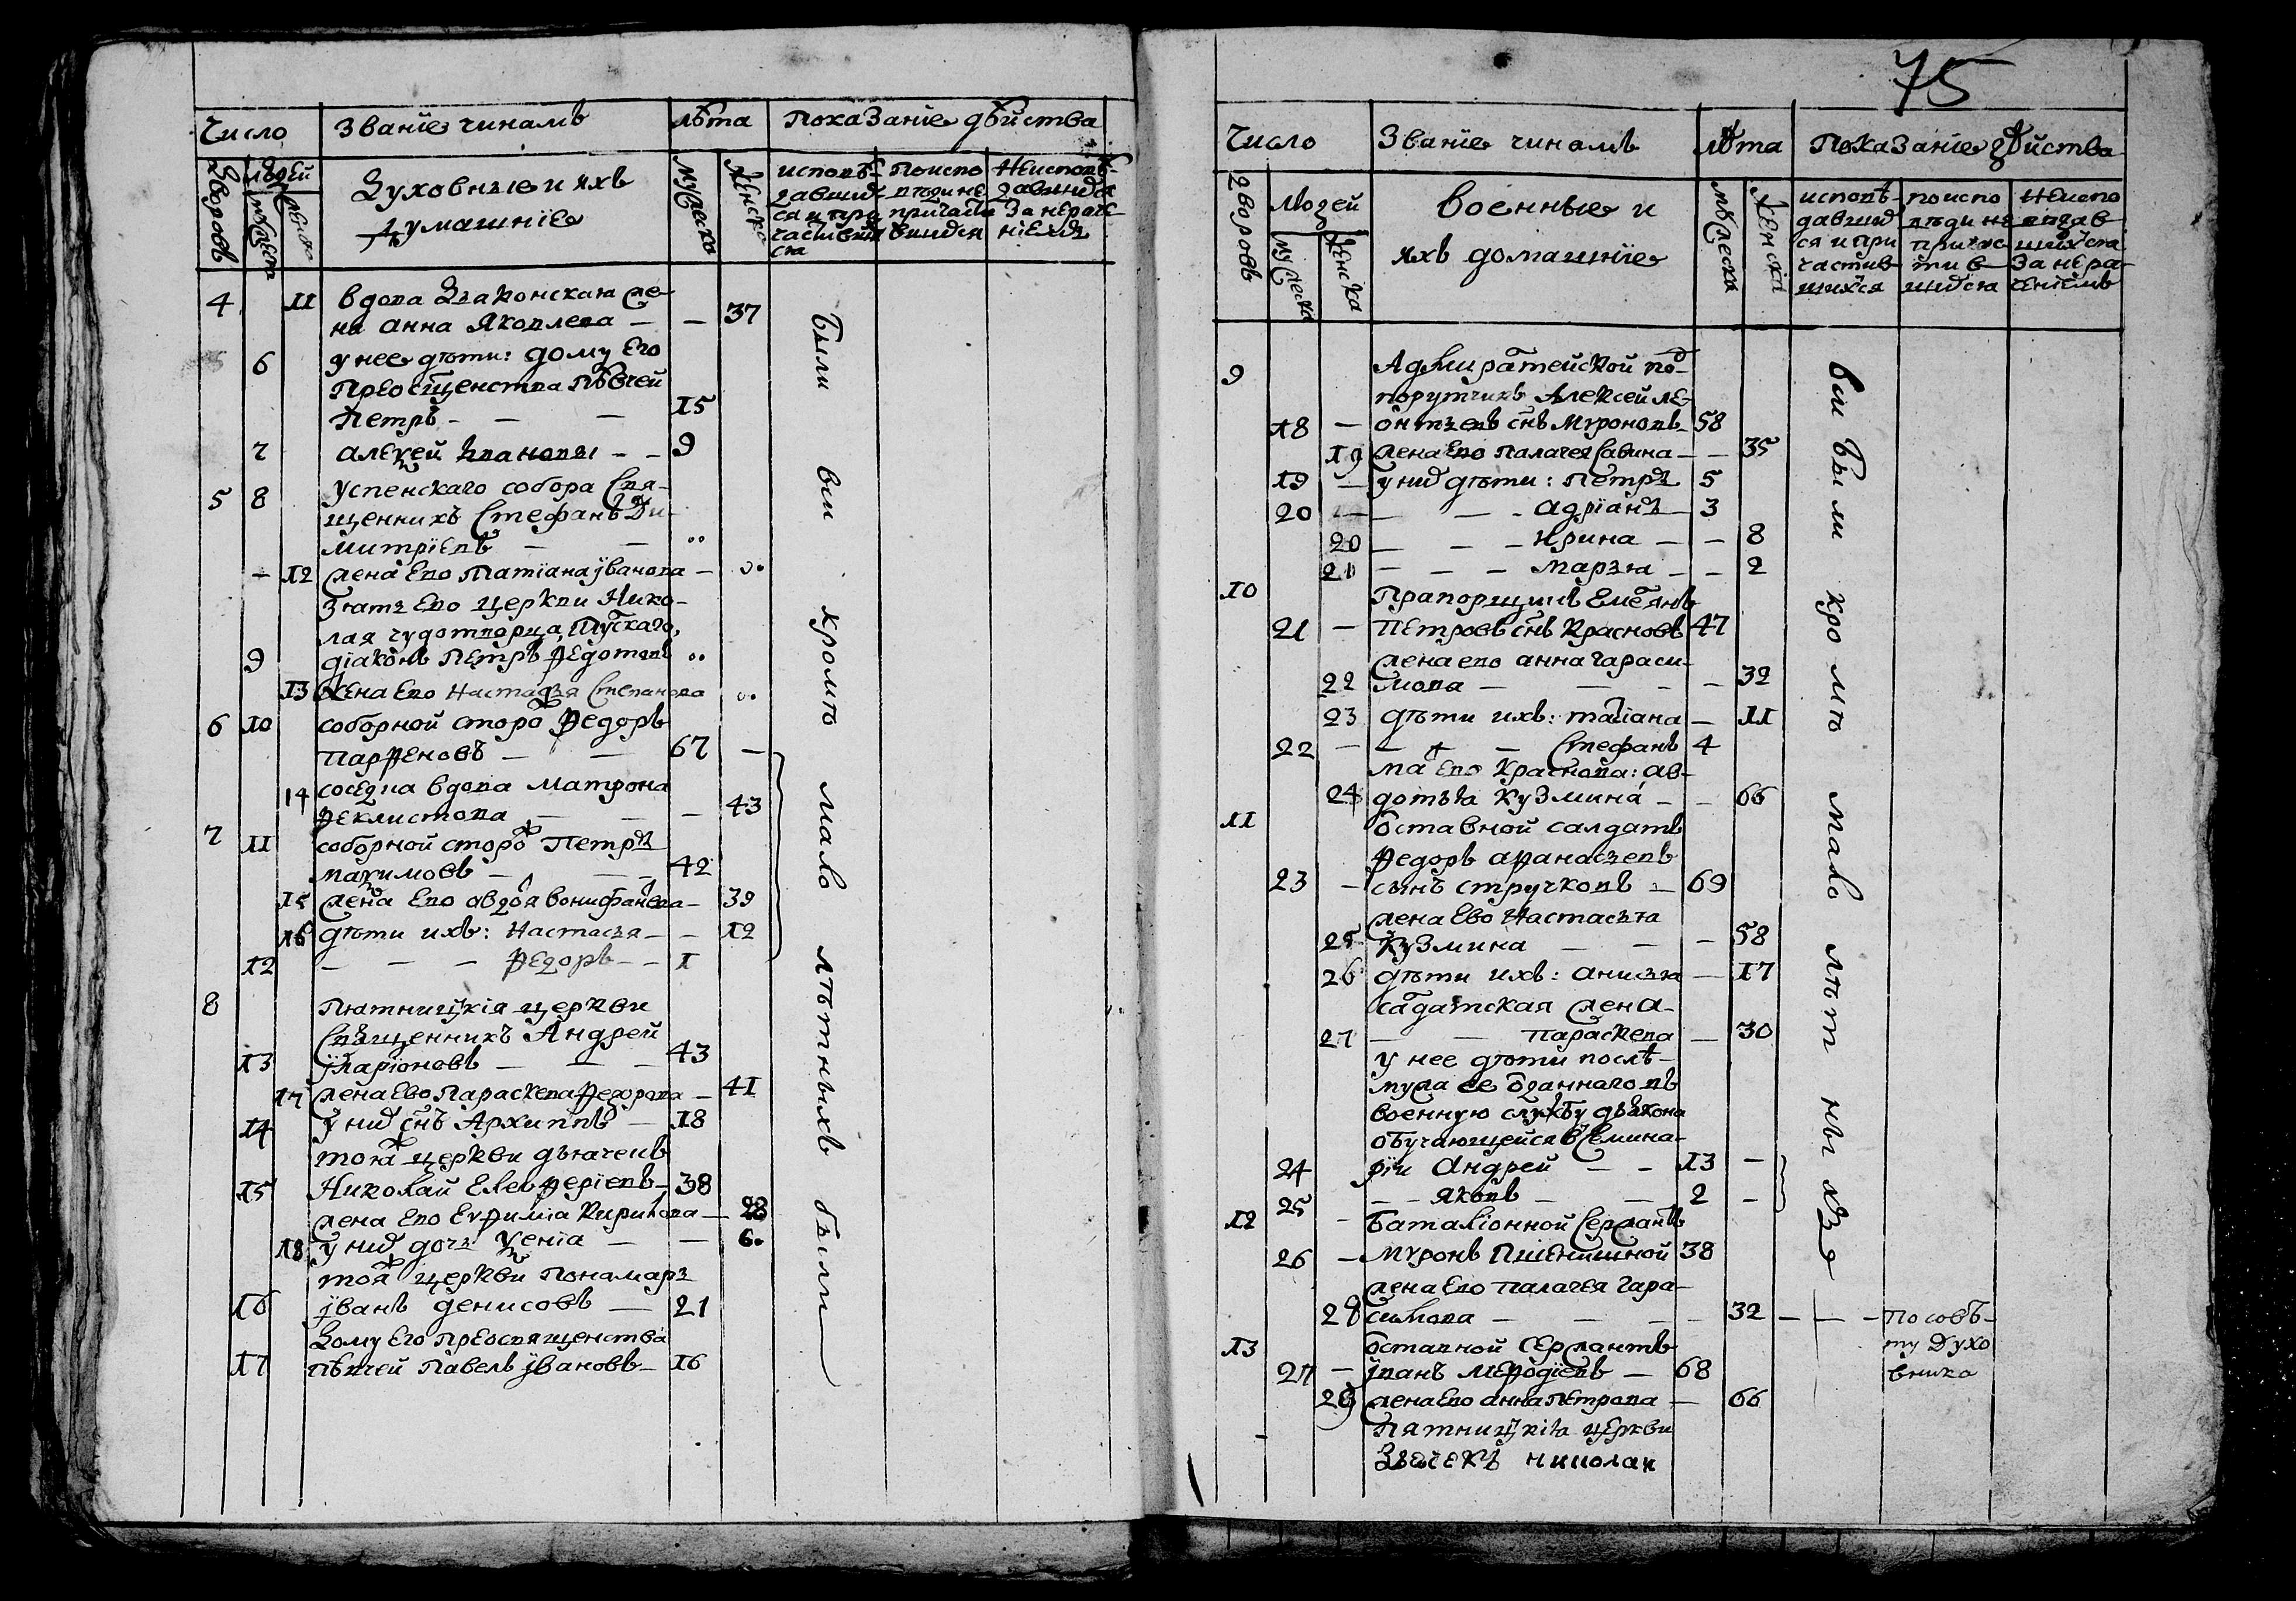 Число званïе чиномъ лѣта Показанïе дѣйства
дворовъ людей мужеска женска Духовные и ихъ домашнïе мужеска женска исповѣ- поиспо неисповѣ-
давших- вѣди не давшихся
ся и при причасти за нераче-
частивши вшихся нïемъ
ся
4 11 вдова дьяконская же-
на анна Яковлева — — 37
6 у нее дѣти: дому Его
Преосщенства пѣвчей
Петръ — — 15
7 алеѯей Ивановы — — 9
5 8 Успенскаго собора Свя-
щенникъ Стефанъ Ди-
митрïевъ — — ..
— 12 жена Ево Татïана Ïванова — ..
зять Ево церкви Нико-
лая чудотворца Тускаго,
9 дïаконъ Петръ Ѳедотовъ ..
13 жена Ево Настасья Степанова ..
6 10 соборной сторож Ѳедоръ
парѳеновъ — — 67 —
14 соседка вдова Матрона
Ѳеклистова — — — 43
7 11 соборной сторож Петръ
маѯимовъ — — — 42
15 жена Ево авдотя вонифатева — 39
16 дѣти ихъ: Настасья — — 12
12 — — — Ѳедоръ — — 1
8 Пятницкïя церкви
Священникъ Андрей
13 Ïларïоновъ — — — 43
17 жена Ево Параскева Ѳедорова — 41
14 у них снъ Архиппъ — 18
тоя ж церкви дьячекъ
15 Николай Елевѳерïевъ — 38
жена Ево Евѳимïа Кирилова — 28
18 у них дочь Ѯенïа — — 6.
тоя ж церкви пономарь
16 Ïванъ денисовъ — 21
Дому Его Преосвященства
17 пѣвчей Павелъ Ïвановъ — 16
были вси кромѣ малолѣтныхъ были
75
Число Званïе чиномъ лѣта Показанïе дѣйства
дворовъ людей мужеска женска военные и ихъ домашнïе мужеска женска исповѣ- поиспо неиспо
давших вѣди не вѣдав
ся и при причас шихся
частив- тив- за нера-
шихся шихся ченïемъ
9 Адмиратейской по-
порутчикъ Алексей ле-
18 — онтьевъ снъ Мѵроновъ — 58
19 жена Ево палагея Савина — — 35
19 — у них дѣти: Петръ 5
20 — — — — адрïанъ — 3
20 — — — Ирина — — 8
21 — — — марья — — 2
10 Прапорщикъ Емелянъ
21 — Петровъ снъ Красновъ 47
жена ево анна гараси-
22 мова — — — — 32
23 дѣти ихъ: татïана — 11
22 — — — Стефанъ 4
мат Ево Краснова: ав-
24 дотья Кузмина — — 66
11 отставной салдатъ
Ѳедоръ аѳанасьевъ
23 — сынъ стручковъ — 69
жена Ево Настасья
25 Кузмина — — — 58
26 дѣти ихъ: анисья — 17
салдатская жена —
27 — — параскева — 30
у нее дѣти послѣ —
мужа ее отданнаго въ
военную службу дьякона
обучающейся в Семина-
24 рïи Андрей — — 13 —
25 — — яковъ — — 2 —
12 — Баталïонной Сержантъ
26 — Мѵронъ Пшенишной 38
жена Ево палагея гара-
28 симова — — — — 32 — — — По совѣ-
ту духо
вника
13 отставной Сержантъ
27 — Ïванъ Меѳодïевъ — 68
29 жена Ево анна Петрова — 66
Пятницкïя церкви
Дьячекъ николаи
вси были кромѣ малолѣтныхъ